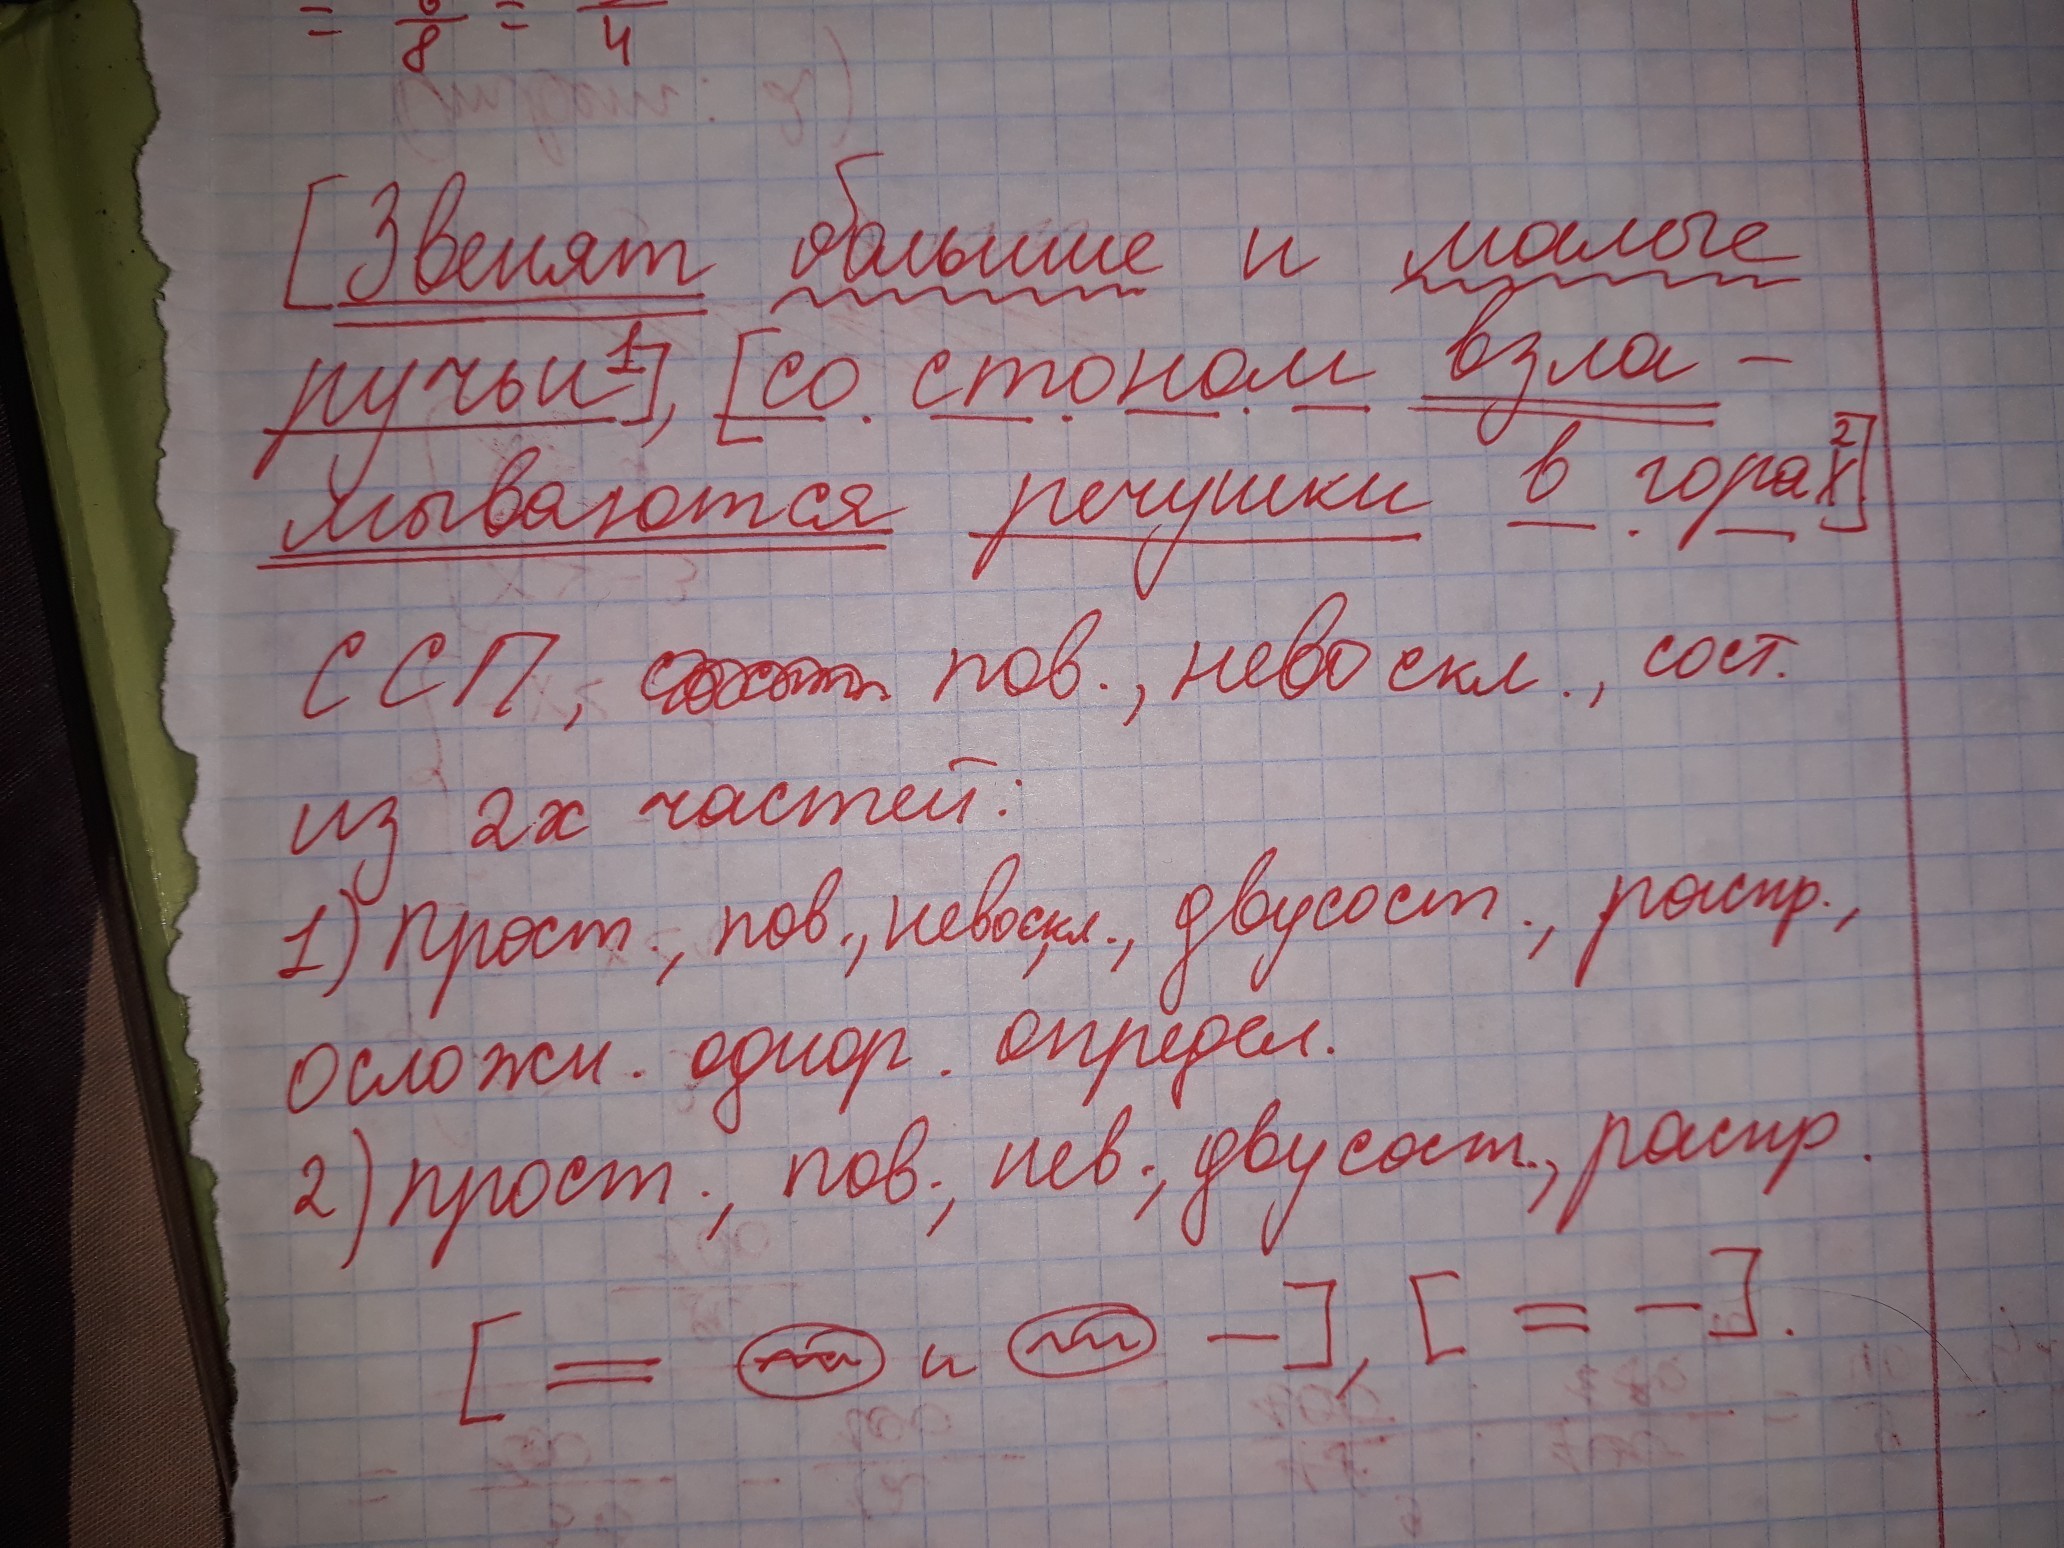 = 6/8 = /4
[Звенят большие и малые
ручьи¹], [со стоном взла-
мываются речушки в горах²]
ССП, пов., невоскл., сост.
из 2х частей:
1) прост., пов., невоскл., двусост., распр.,
осложн. однор. определ.
2) прост., пов., нев., двусост., распр.
[ = и — ], [ = — ].